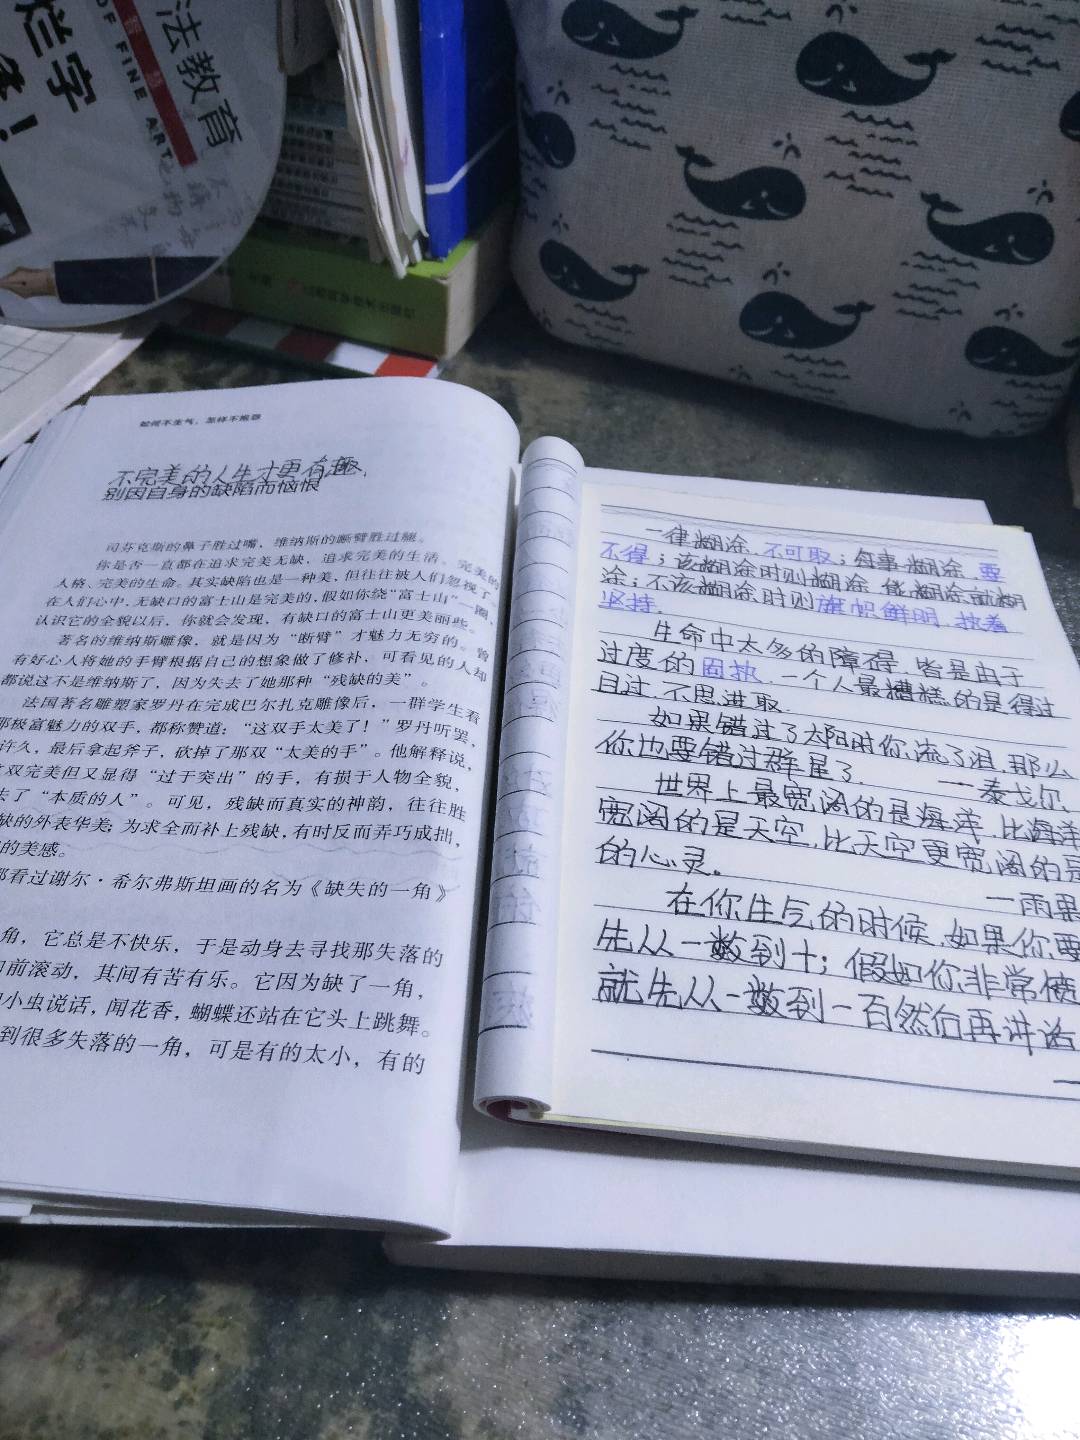 法教育
OF FINE ART
烂字
！
如何不生气，怎样不抱怨
不完美的人生才更有趣，
别因自身的缺陷而恼恨
司芬克斯的鼻子胜过嘴，维纳斯的断臂胜过腿。
你是否一直都在追求完美无缺，追求完美的生活、完美的
人格、完美的生命。其实缺陷也是一种美，但往往被人们忽视了。
在人们心中，无缺口的富士山是完美的，假如你绕“富士山”一圈，
认识它的全貌以后，你就会发现，有缺口的富士山更美丽些。
著名的维纳斯雕像，就是因为“断臂”才魅力无穷的。曾
有好心人将她的手臂根据自己的想象做了修补，可看见的人却
都说这不是维纳斯了，因为失去了她那种“残缺的美”。
法国著名雕塑家罗丹在完成巴尔扎克雕像后，一群学生看
那极富魅力的双手，都称赞道：“这双手太美了！”罗丹听罢，
许久，最后拿起斧子，砍掉了那双“太美的手”。他解释说，
双完美但又显得“过于突出”的手，有损于人物全貌，
去了“本质的人”。可见，残缺而真实的神韵，往往胜
缺的外表华美；为求全而补上残缺，有时反而弄巧成拙，
的美感。
都看过谢尔·希尔弗斯坦画的名为《缺失的一角》
角，它总是不快乐，于是动身去寻找那失落的
向前滚动，其间有苦有乐。它因为缺了一角，
小虫说话，闻花香，蝴蝶还站在它头上跳舞。
到很多失落的一角，可是有的太小，有的
一律糊涂，不可取；每事糊涂，要
不得；该糊涂时则糊涂，能糊涂就糊
涂；不该糊涂时则旗帜鲜明，执着
坚持。
生命中太多的障碍，皆是由于
过度的固执，一个人最糟糕的是得过
且过，不思进取。
如果错过了太阳时你流了泪，那么
你也要错过群星了 —泰戈尔
世界上最宽阔的是海洋，比海洋
宽阔的是天空，比天空更宽阔的是
的心灵。
—雨果
在你生气的时候，如果你要
先从一数到十；假如你非常愤
就先从一数到一百然后再讲话